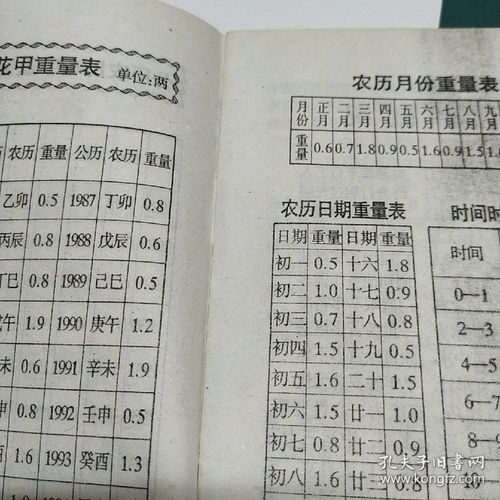 花甲重量表 单位:两
农历 重量 公历 农历 重量
乙卯 0.5 1987 丁卯 0.8
丙辰 0.8 1988 戊辰 0.6
丁巳 0.8 1989 己巳 0.5
午 1.9 1990 庚午 1.2
未 0.6 1991 辛未 1.9
申 0.8 1992 壬申 0.5
1.6 1993 癸酉 1.3
农历月份重量表
月份 正月 二月 三月 四月 五月 六月 七月 八月 九
重量 0.6 0.7 1.8 0.9 0.5 1.6 0.9 1.5
农历日期重量表
日期 重量 日期 重量
初一 0.5 十六 1.8
初二 1.0 十七 0.9
初三 0.7 十八 0.8
初四 1.5 十九 0.5
初五 1.6 二十 1.5
初六 1.5 廿一 1.0
初七 0.8 廿二 0.9
初八 1.6 廿三 0.8
时间时
时间
0—1
2—3
4—5
6—7
8—9
10
孔夫子旧书网
www.kongfz.com